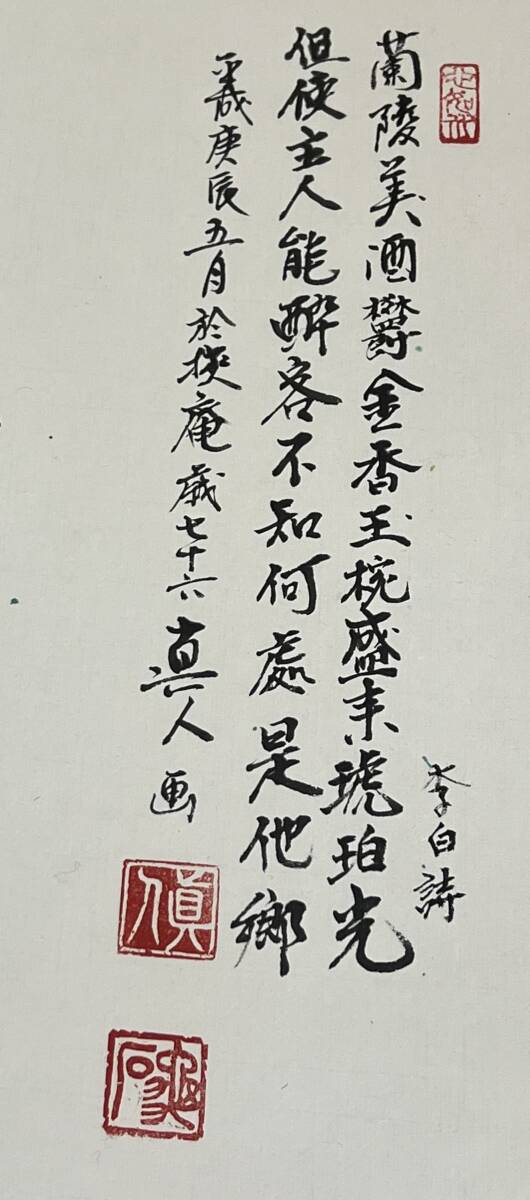 蘭陵美酒鬱金香玉椀盛來琥珀光
李白詩
但使主人能醉客不知何處是他鄉
歲庚辰五月於 庵歲七十六真人画